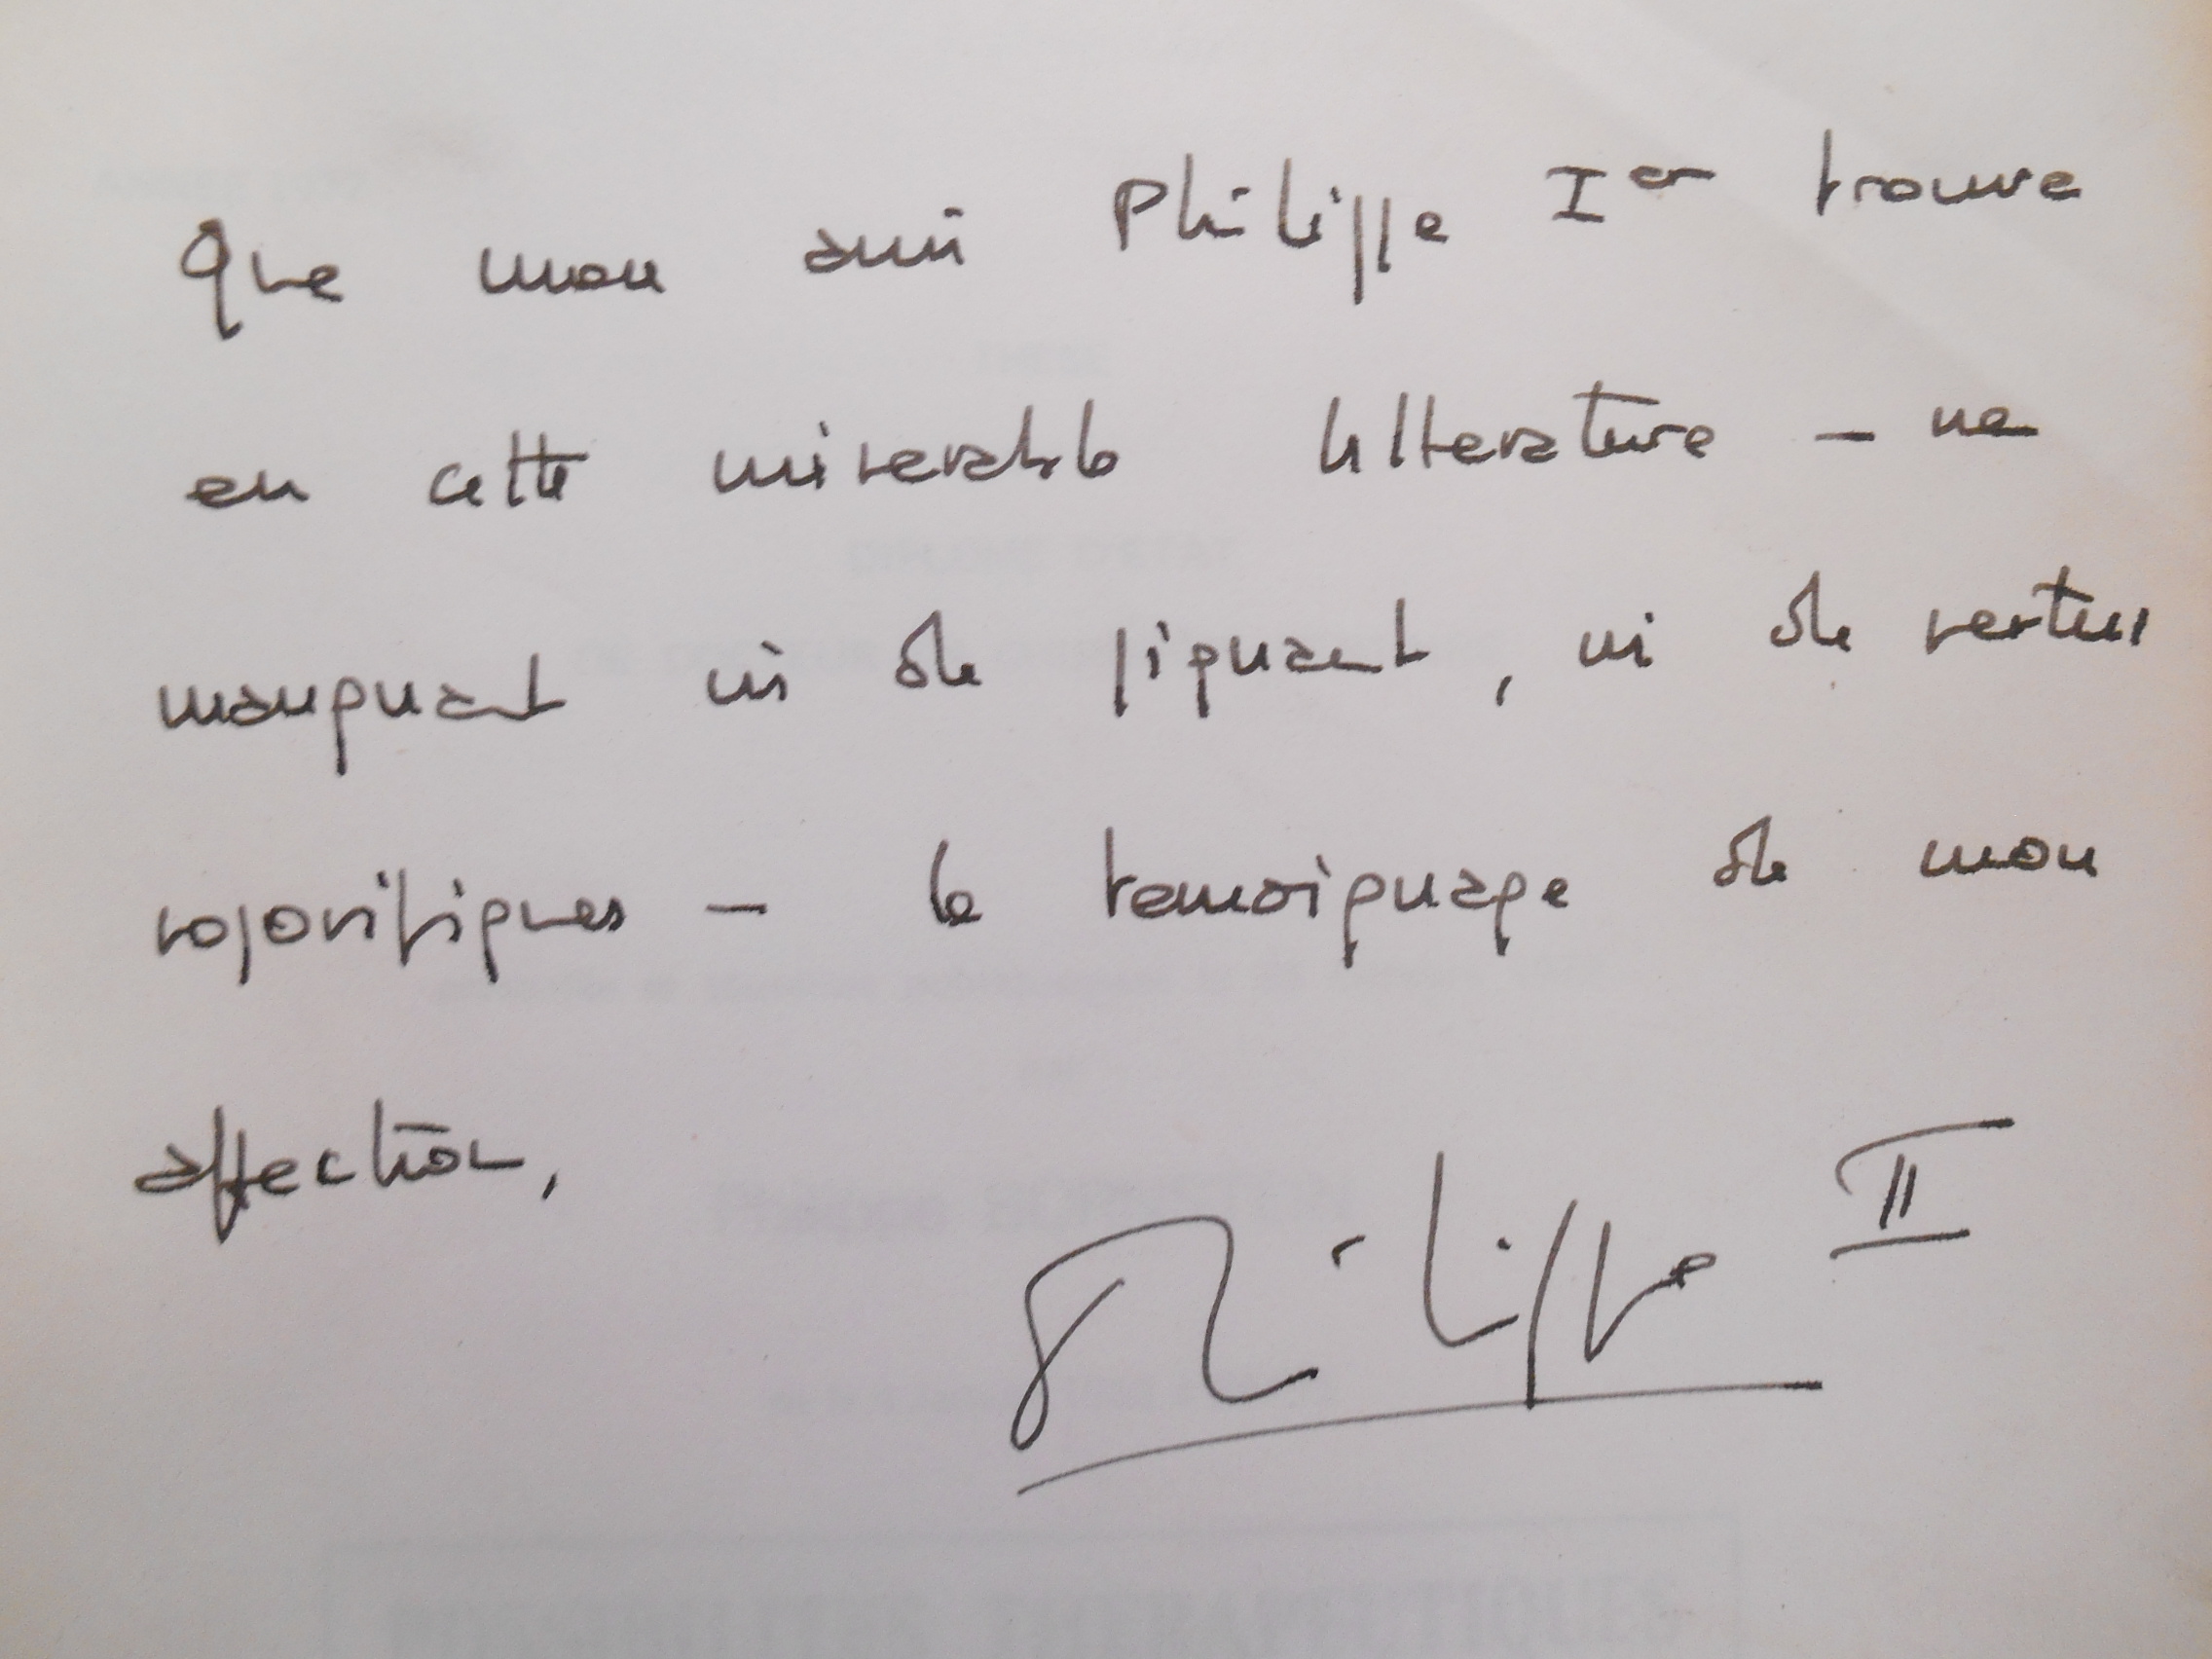 Que mon ami Philippe Ier trouve
en cette miserable litterature - ne
manquant ni de piquant, ni de vertus
soporifiques - le temoignage de mon
affection,
Philippe II
DIPLOME D'ETAT
THERAPEUTIQUES